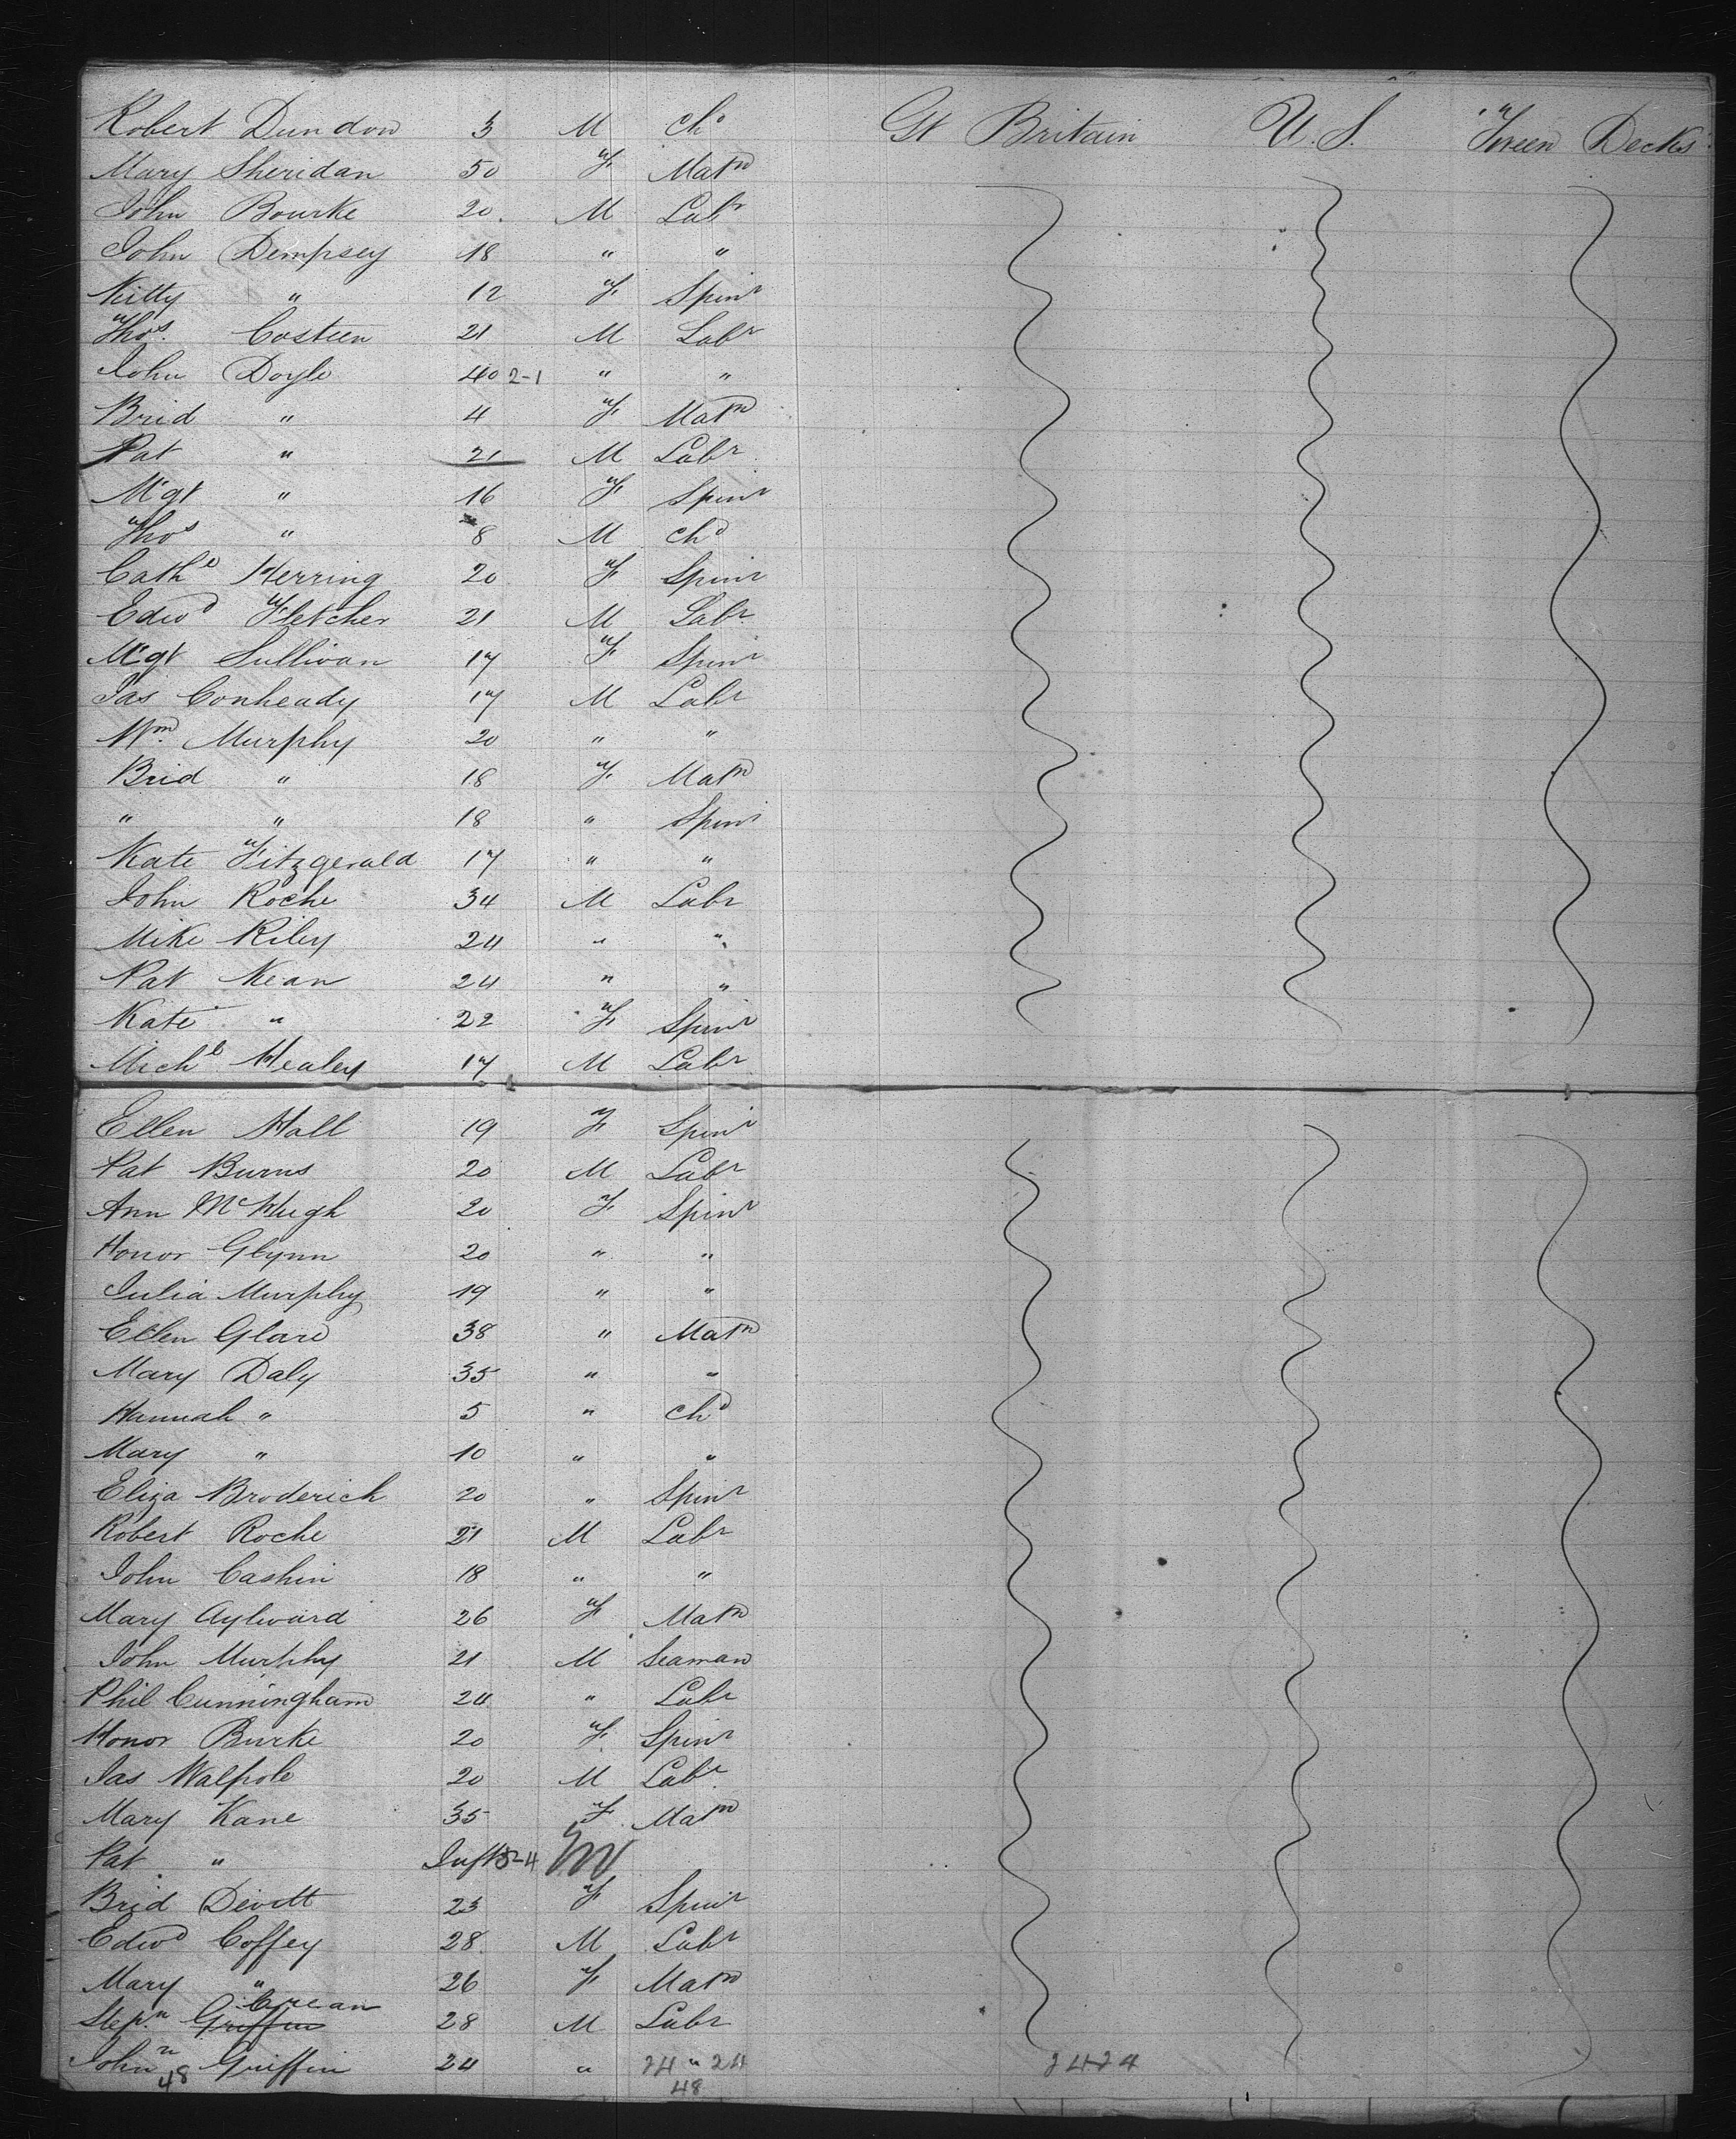 Robert Dundon 3 M Chd Gt Britain U.S. 'Tween Decks
Mary Sheridan 50 F Matn
John Bourke 20 M Labr
John Dempsey 18 " "
Kitty " 12 F Spinr
Thos. Costeen 21 M Labr
John Doyle 40 2-1 " "
Brid " 4 F Matn
Pat " 21 M Labr
Mgt " 16 F Spinr
Thos " 8 M Chd
Cathe Herring 20 F Spinr
Edwd Fletcher 21 M Labr
Mgt Sullivan 17 F Spinr
Jas Conheady 17 M Labr
Wm. Murphy 20 " "
Brid " 18 F Matn
" " 18 " Spinr
Kate Fitzgerald 17 " "
John Roche 34 M Labr
Mike Riley 24 " "
Pat Kean 24 " "
Kate " 22 F Spinr
Michl Healey 17 M Labr
Ellen Hall 19 F Spinr
Pat Burns 20 M Labr
Ann McHugh 20 F Spinr
Honor Glynn 20 " "
Julia Murphy 19 " "
Ellen 38 " Matn
Mary Daly 35 " "
Hannah " 5 " Chd
Mary " 10 " "
Eliza Broderich 20 " Spinr
Robert Roche 21 M Labr
John Cashin 18 " "
Mary Aylward 26 F Matn
John Murphy 21 M Seaman
Phil Cunningham 24 " Labr
Honor Burke 20 F Spinr
Jas Walpole 20 M Labr
Mary Kane 35 F Matn
Pat " Inft 2-4 M
Brid Devitt 23 F Spinr
Edwd Coffey 28 M Labr
Mary " 26 F Matn
Crean
Stepn Griffin 28 M Labr
John Griffin 24 " 24 " 24 24-24
48 48